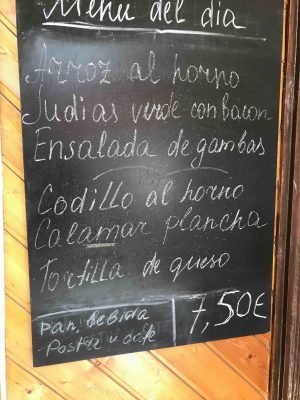 Menu del dia
Arroz al horno
Judias verde con bacon
Ensalada de gambas
Codillo al horno
Calamar plancha
Tortilla de queso
Pan, Bebida
Postre u cafe
7,50€